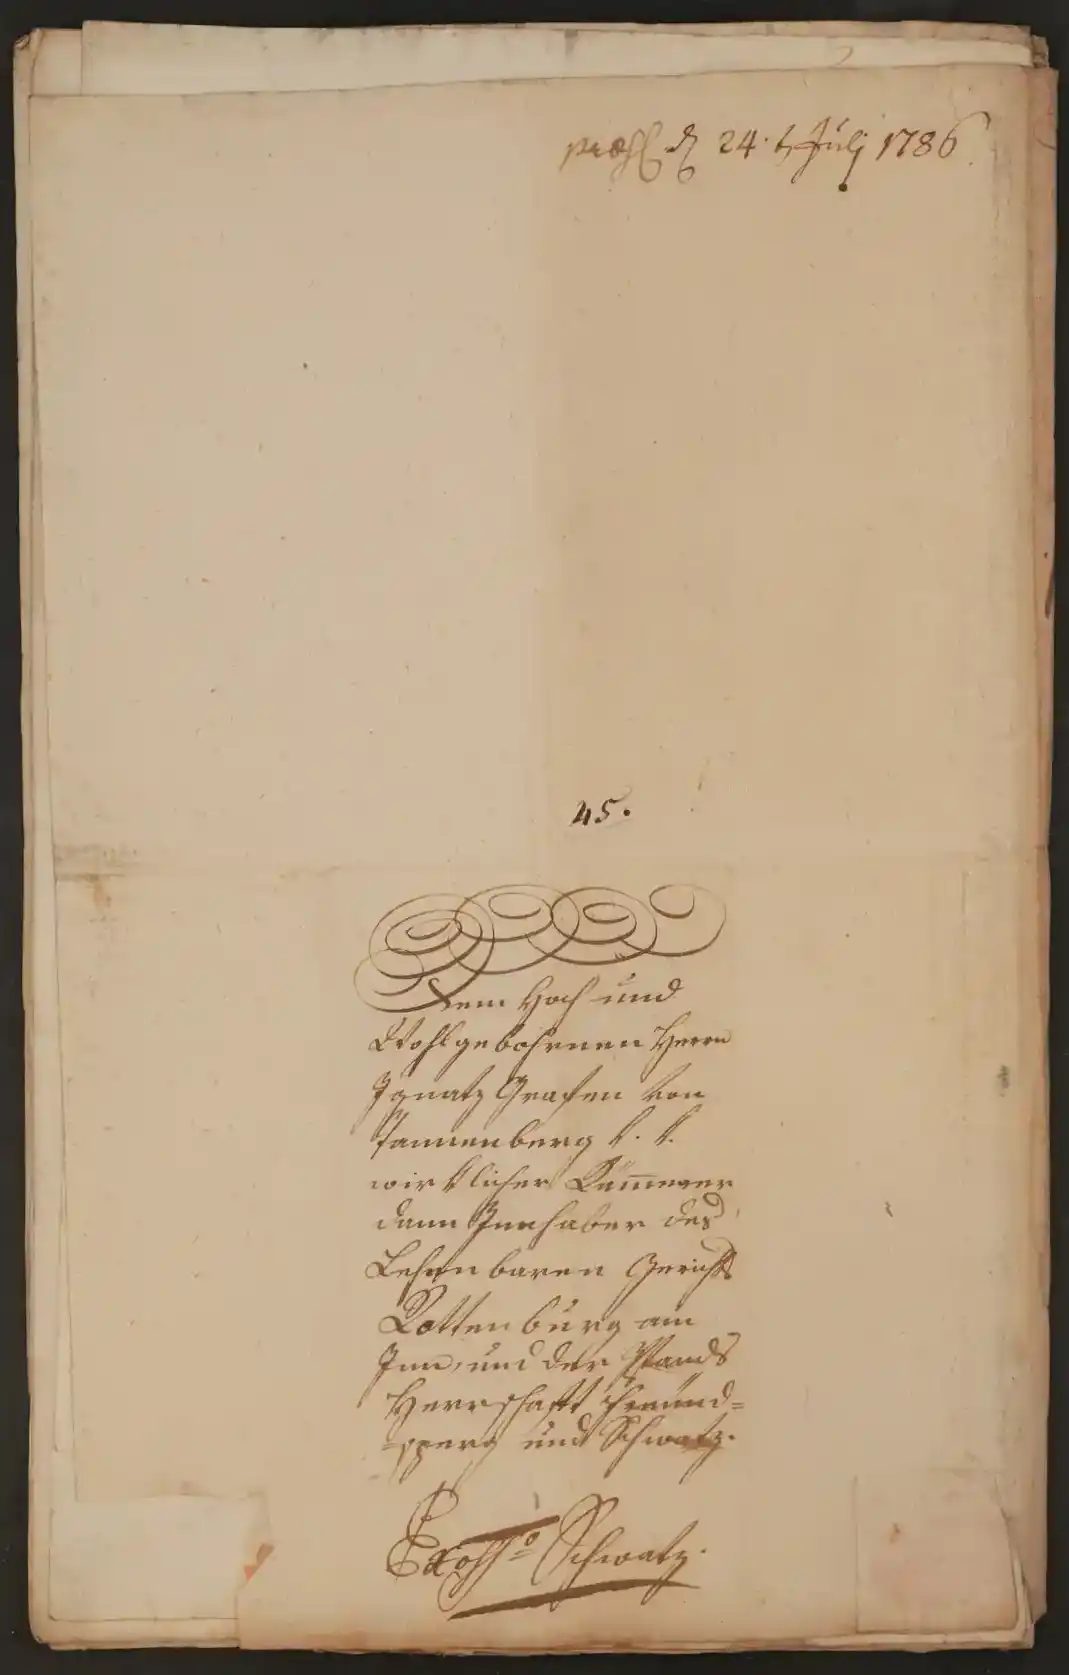 præs d 24. t Julj 1786
45.
Dem Hoch und
Wohlgebohrnen Herrn
Ignatz Grafen von
Tannenberg k. k.
wirklicher Kam̄erer
dann Innhaber des
Lehenbaren Gerichts
Rottenburg am
Inn, und der Pfands
Herrschafft Freund=
=sperg und Schwatz.
Ex offo Schwatz.